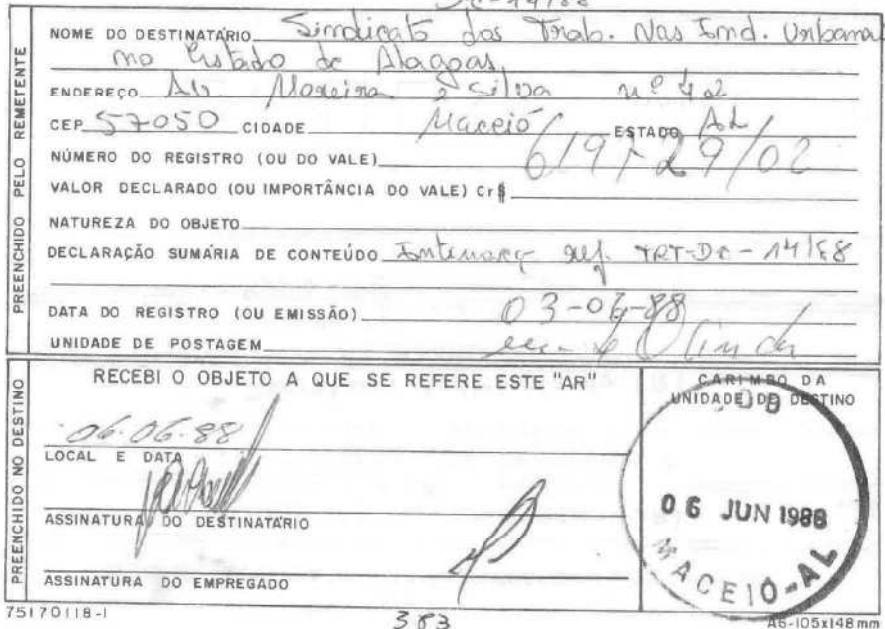 DC-14/88
NOME DO DESTINATÁRIO Sindicato dos Trab. Nas Ind. Urbana
no Estado de Alagoas
ENDEREÇO Moreira e Silva nº
CEP 57050 CIDADE Maceió ESTADO AL
NÚMERO DO REGISTRO (OU DO VALE) 29/02
VALOR DECLARADO (OU IMPORTÂNCIA DO VALE) Cr$
NATUREZA DO OBJETO
DECLARAÇÃO SUMÁRIA DE CONTEÚDO ref. TRT-DC-14/88
DATA DO REGISTRO (OU EMISSÃO) 03-06-88
UNIDADE DE POSTAGEM Olinda
PREENCHIDO PELO REMETENTE
RECEBI O OBJETO A QUE SE REFERE ESTE "AR"
06.06.88
LOCAL E DATA
ASSINATURA DO DESTINATÁRIO
ASSINATURA DO EMPREGADO
PREENCHIDO NO DESTINO
CARIMBO DA
UNIDADE DE DESTINO
06 JUN 1988
MACEIÓ-AL
75170118-1
383
A6-105x148mm